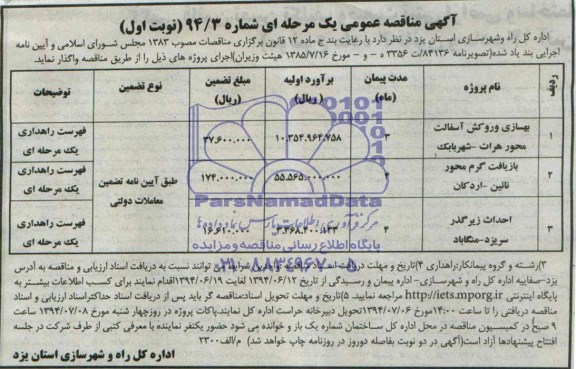 آگهی مناقصه عمومی یک مرحله ای شماره ۹۴/۳ (نوبت اول)
اداره کل راه وشهرسازی استان یزد در نظر دارد با رعایت بند ج ماده ۱۲ قانون برگزاری مناقصات مصوب ۱۳۸۳ مجلس شورای اسلامی و آیین نامه
اجرایی بند یاد شده(تصویرنامه ۸۴۱۳۶/ت ۳۳۵۶ ه - و - مورخ ۱۳۸۵/۷/۱۶ هیئت وزیران)اجرای پروژه های ذیل را از طریق مناقصه واگذار نماید.
ردیف نام پروژه مدت پیمان (ماه) برآورد اولیه (ریال) مبلغ تضمین (ریال) نوع تضمین توضیحات
۱ بهسازی وروکش آسفالت محور هرات –شهربابک ۳ ۱۰.۳۵۴.۹۶۴.۷۵۸ ۳۷.۶۰۰.۰۰۰ طبق آیین نامه تضمین معاملات دولتی فهرست راهداری یک مرحله ای
۲ بازیافت گرم محور نائین –اردکان ۴ ۵۵.۵۶۵.۰۰۰.۰۰۰ ۱۷۴.۰۰۰.۰۰۰ فهرست راهداری یک مرحله ای
۳ احداث زیرگذر سریزد–منگاباد ۴ ۳.۳۶۸.۴۰۰.۱۴۳ ۱۶.۶۱۰.۰۰۰ فهرست راهداری یک مرحله ای
ParsNamadData
مرکز فرآوری اطلاعات پارس نماد داده ها
پایگاه اطلاع رسانی مناقصه و مزایده
۰۲۱-۸۸۳۴۹۶۷۰-۵
۳)رشته و گروه پیمانکار:راهداری ۴)تاریخ و مهلت دریافت اسناد شرایط می توانند نسبت به دریافت اسناد ارزیابی و مناقصه به آدرس
یزد–صفاییه اداره کل راه و شهرسازی–اداره پیمان و رسیدگی از تاریخ ۱۳۹۴/۰۶/۱۲ لغایت ۱۳۹۴/۰۶/۱۹اقدام نمایند برای کسب اطلاعات بیشتر به
پایگاه اینترنتی http://iets.mporg.ir مراجعه نمایید. ۵)تاریخ و مهلت تحویل اسناد:مناقصه گر باید پس از دریافت اسناد حداکثراسناد ارزیابی و اسناد
مناقصه دریافتی را تا ساعت ۱۴:۰۰مورخ ۱۳۹۴/۰۷/۰۶تحویل دبیرخانه حراست اداره کل نمایند.پاکات پروژه در روزچهار شنبه مورخ ۱۳۹۴/۰۷/۰۸ ساعت
۹ صبح در کمیسیون مناقصه در محل اداره کل ساختمان شماره یک باز و خوانده می شود حضور یکنفر نماینده با معرفی کتبی از طرف شرکت در جلسه
افتتاح پیشنهادها آزاد است(آگهی در دو نوبت بفاصله دوروز در روزنامه چاپ خواهد شد) م/الف۲۳۰۰
اداره کل راه و شهرسازی استان یزد